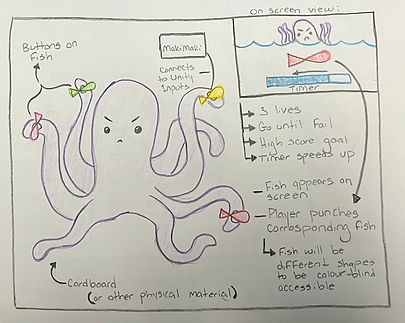 on screen view:
Buttons on
Fish
MakiMaki
Connects
to Unity
Inputs
Timer
3 lives
Go until Fail
High score goal
Timer speeds up
Fish appears on
screen
Player punches
corrosponding fish
Fish will be
different shapes
to be colour-blind
accessible
Cardboard
(or other physical material)